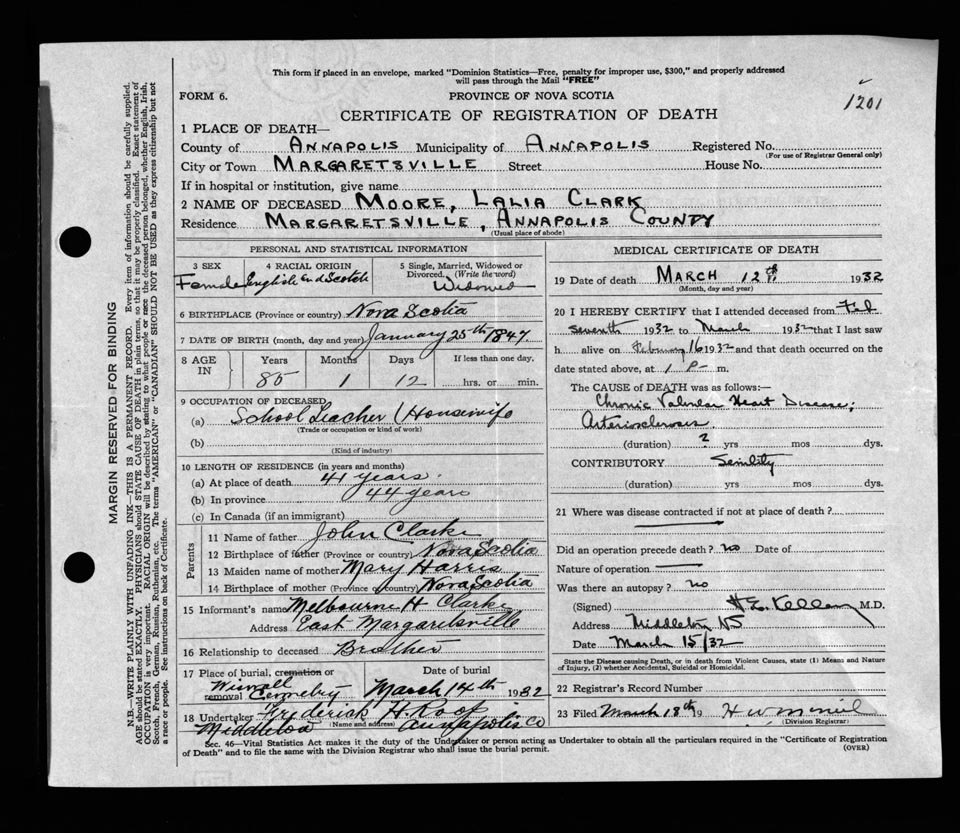 This form if placed in an envelope, marked "Dominion Statistics—Free, penalty for improper use, $300," and properly addressed
will pass through the Mail "FREE"
FORM 6.
PROVINCE OF NOVA SCOTIA
1201
CERTIFICATE OF REGISTRATION OF DEATH
1 PLACE OF DEATH—
County of ANNAPOLIS Municipality of ANNAPOLIS Registered No.
(For use of Registrar General only)
City or Town MARGARETSVILLE Street House No.
If in hospital or institution, give name
2 NAME OF DECEASED MOORE, LALIA CLARK
Residence MARGARETSVILLE, ANNAPOLIS COUNTY
(Usual place of abode)
PERSONAL AND STATISTICAL INFORMATION
3 SEX
Female
4 RACIAL ORIGIN
English and Scotch
5 Single, Married, Widowed or
Divorced. (Write the word)
Widowed
6 BIRTHPLACE (Province or country) Nova Scotia
7 DATE OF BIRTH (month, day and year) January 25th 1847.
8 AGE
IN
Years
Months
Days
If less than one day.
85
1
12
hrs. or min.
9 OCCUPATION OF DECEASED
(a) School Teacher (Housewife
(Trade or occupation or kind of work)
(b)
(Kind of industry)
10 LENGTH OF RESIDENCE (in years and months)
(a) At place of death 41 years.
(b) In province 44 years
(c) In Canada (if an immigrant)
Parents
11 Name of father John Clarke
12 Birthplace of father (Province or country) Nova Scotia
13 Maiden name of mother Mary Harris
14 Birthplace of mother (Province or country) Nova Scotia
15 Informant's name Melbourne H Clarke
Address East Margaretsville
16 Relationship to deceased Brother
17 Place of burial, cremation or
removal Cemetery
Date of burial
March 14th 1932
18 Undertaker Frederick H Roop
(Name and address)
Middleton Annapolis Co
MEDICAL CERTIFICATE OF DEATH
19 Date of death MARCH 12th 1932
(Month, day and year)
20 I HEREBY CERTIFY that I attended deceased from Feb
seventh 1932 to March 1932 that I last saw
h alive on February 16 1932 and that death occurred on the
date stated above, at 1 P- m.
The CAUSE OF DEATH was as follows:—
Chronic Valvular Heart Disease;
Arteriosclerosis.
(duration) ? yrs mos dys.
CONTRIBUTORY Senility
(duration) yrs mos dys.
21 Where was disease contracted if not at place of death?
Did an operation precede death? no Date of
Nature of operation
Was there an autopsy? no
(Signed) M.D.
Address Middleton NS
Date March 15/32
State the Disease causing Death, or in death from Violent Causes, state (1) Means and Nature
of Injury, (2) whether Accidental, Suicidal or Homicidal.
22 Registrar's Record Number
23 Filed March 18th 19
(Division Registrar)
Sec. 46—Vital Statistics Act makes it the duty of the Undertaker or person acting as Undertaker to obtain all the particulars required in the "Certificate of Registration
of Death" and to file the same with the Division Registrar who shall issue the burial permit.
(OVER)
MARGIN RESERVED FOR BINDING
N.B.—WRITE PLAINLY WITH UNFADING INK—THIS IS A PERMANENT RECORD. Every item of information should be carefully supplied.
AGE should be stated EXACTLY. PHYSICIANS should STATE CAUSE OF DEATH in plain terms, so that it may be properly classified. Exact statement of
OCCUPATION is very important. RACIAL ORIGIN will be described by stating to what people or race the deceased person belonged, whether English, Irish,
Scotch, French, German, Russian, Ruthenian, etc. The terms "AMERICAN" or "CANADIAN" SHOULD NOT BE USED as they express citizenship but not
a race or people. See instructions on back of Certificate.